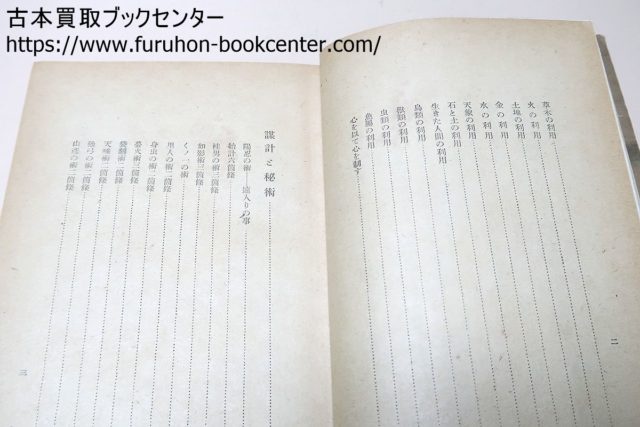 古本買取ブックセンター
https://www.furuhon-bookcenter.com/
草木の利用
火の利用
土壌の利用
金の利用
水の利用
天象の利用
石と土の利用
生きた人間の利用
鳥類の利用
獣類の利用
虫類の利用
魚類の利用
心を以て心を制す
二
謀計と秘術
陽忍の術──遠入りの事
始計六箇條
桂男の術三箇條
如影術三箇條
くノ一の術
里人の術二箇條
身虫の術二箇條
蛍火術三箇條
袋翻術二箇條
天唾術二箇條
弛弓の術二箇條
山彦の術二箇條
三